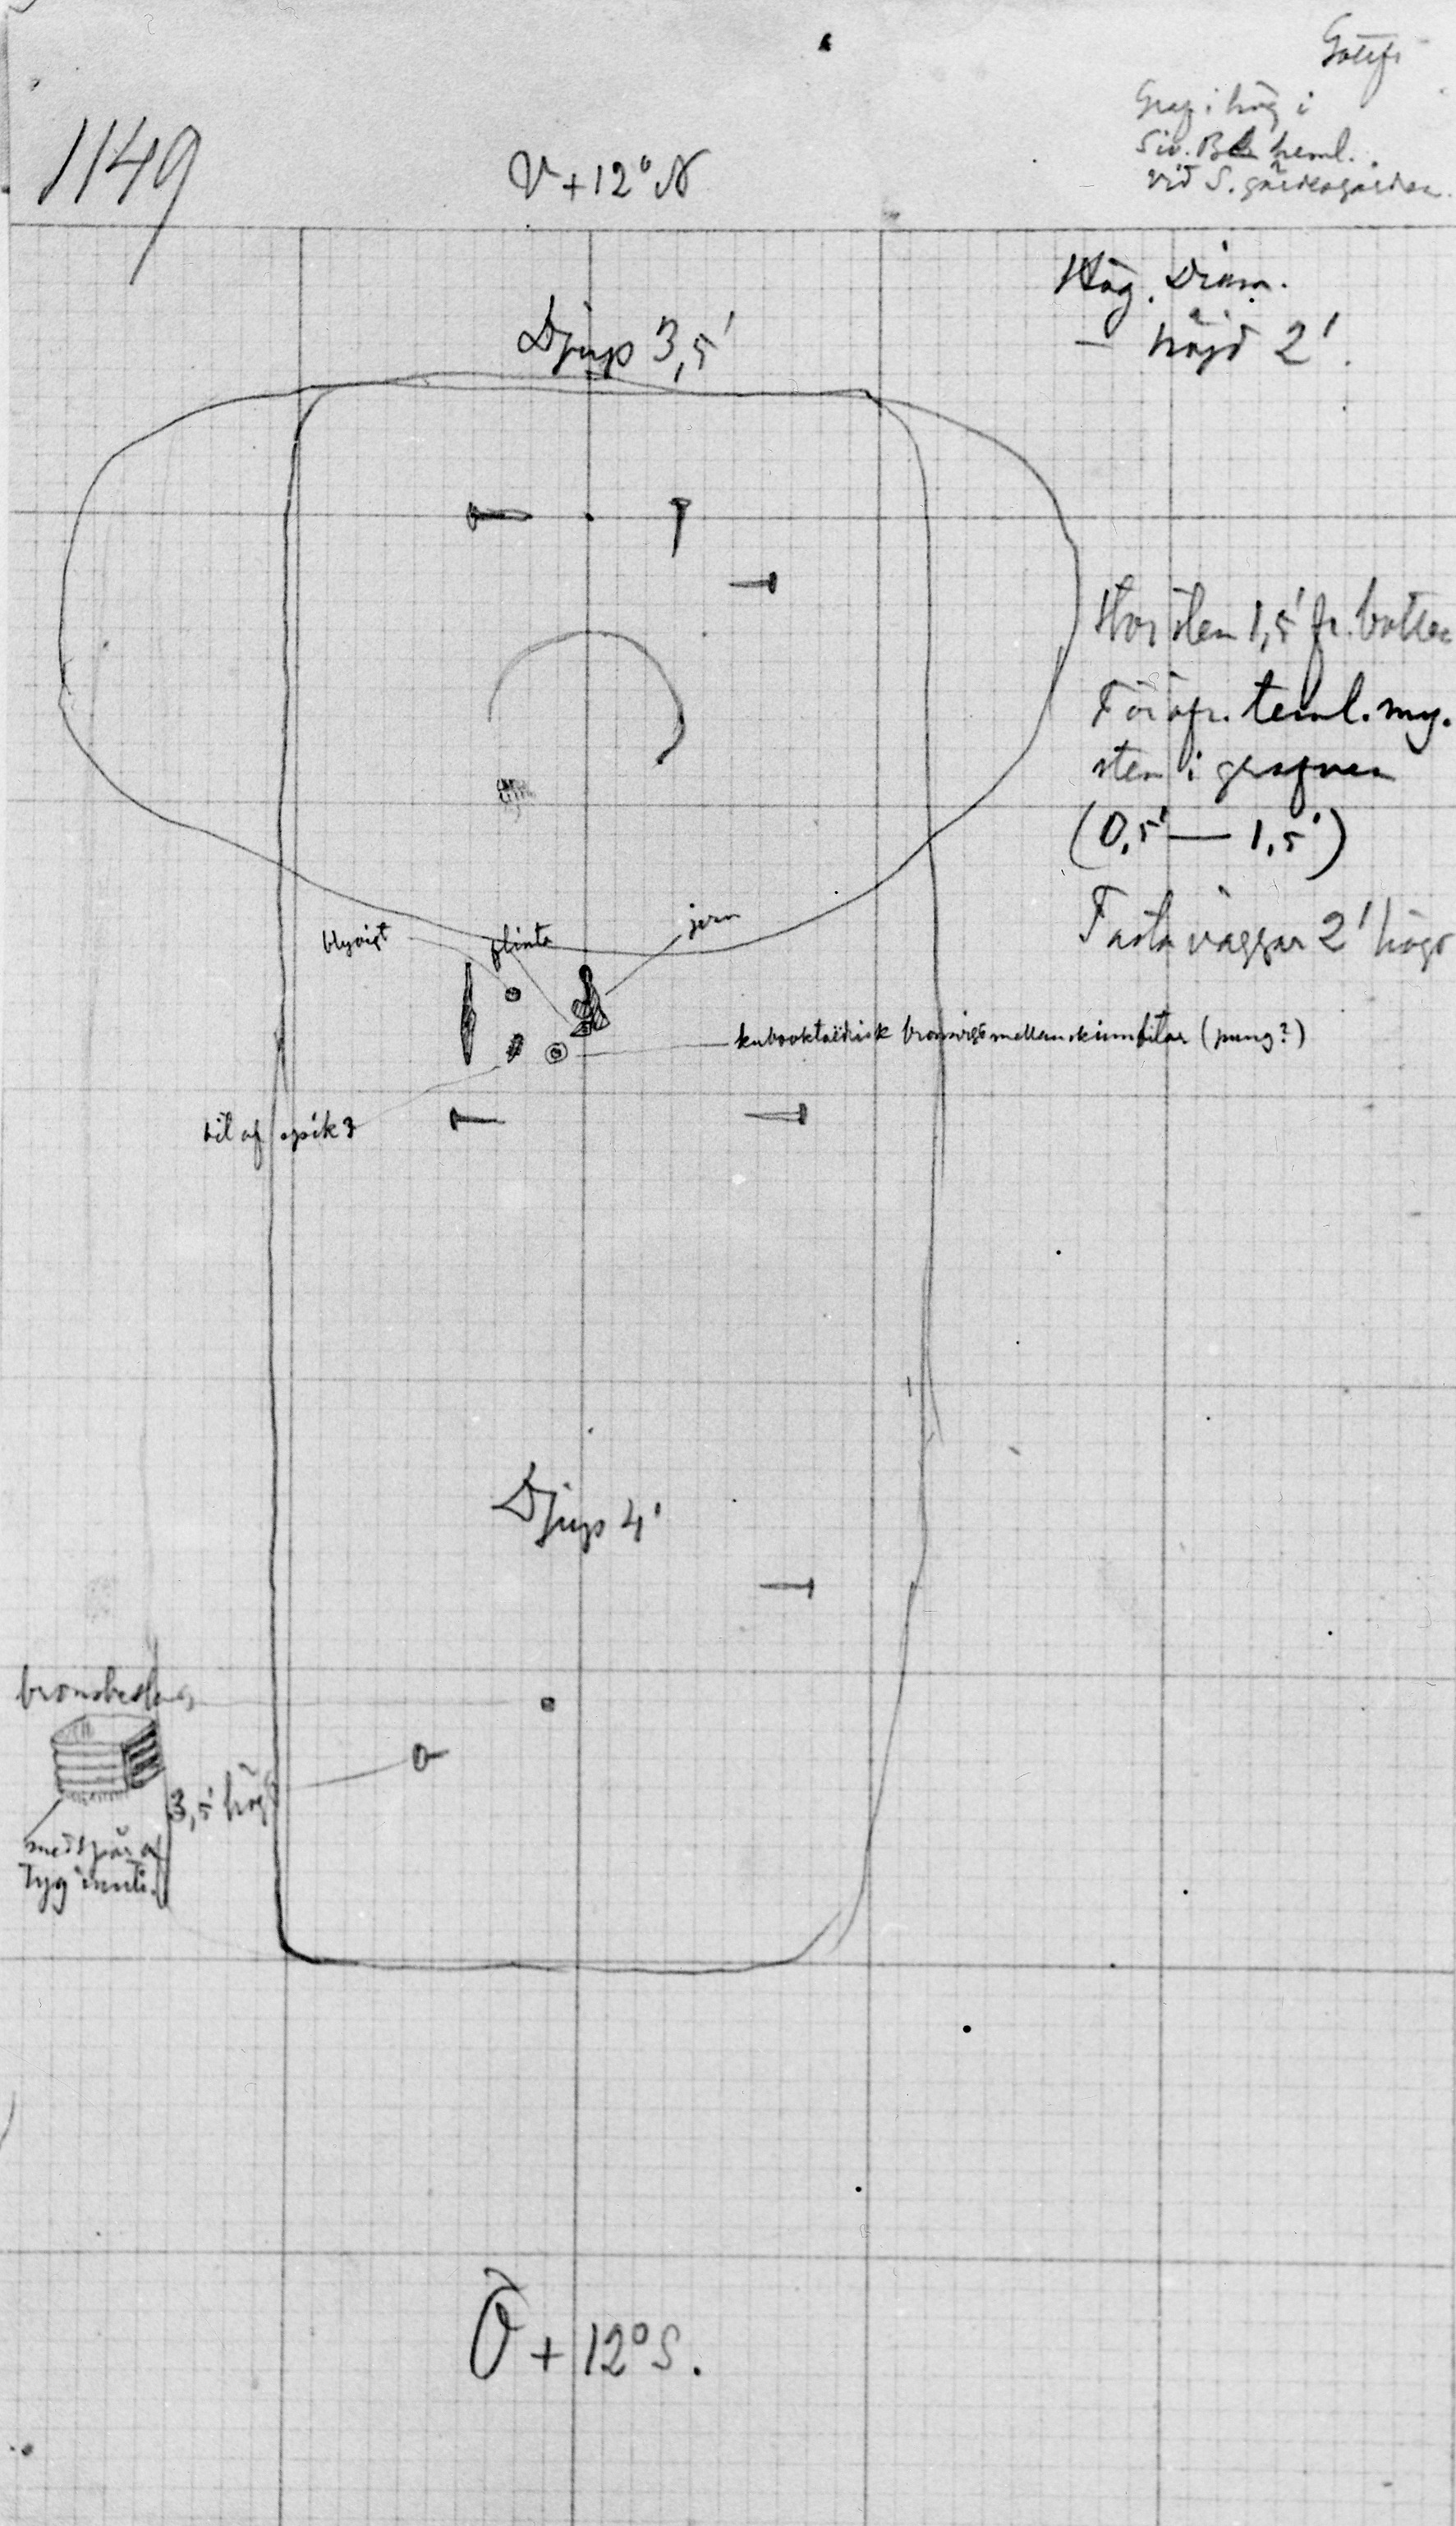 1149
V + 12° N
Graf i hög i
vid S. gärdesgården
Hög. Diam.
— höjd 2'.
Djup 3,5'
Stor sten 1,5' fr. botten
För öfr. teml. my.
sten i grafven
(0,5' — 1,5')
Fasta väggar 2' högt
blyvigt
flinta
jern
kubooktaëdrisk bronsvigt mellan skinnbitar (pung?)
bit af spik?
Djup 4'
bronsbeslag
3,5' högt
med spår af
tyg inuti.
Ö + 12° S.